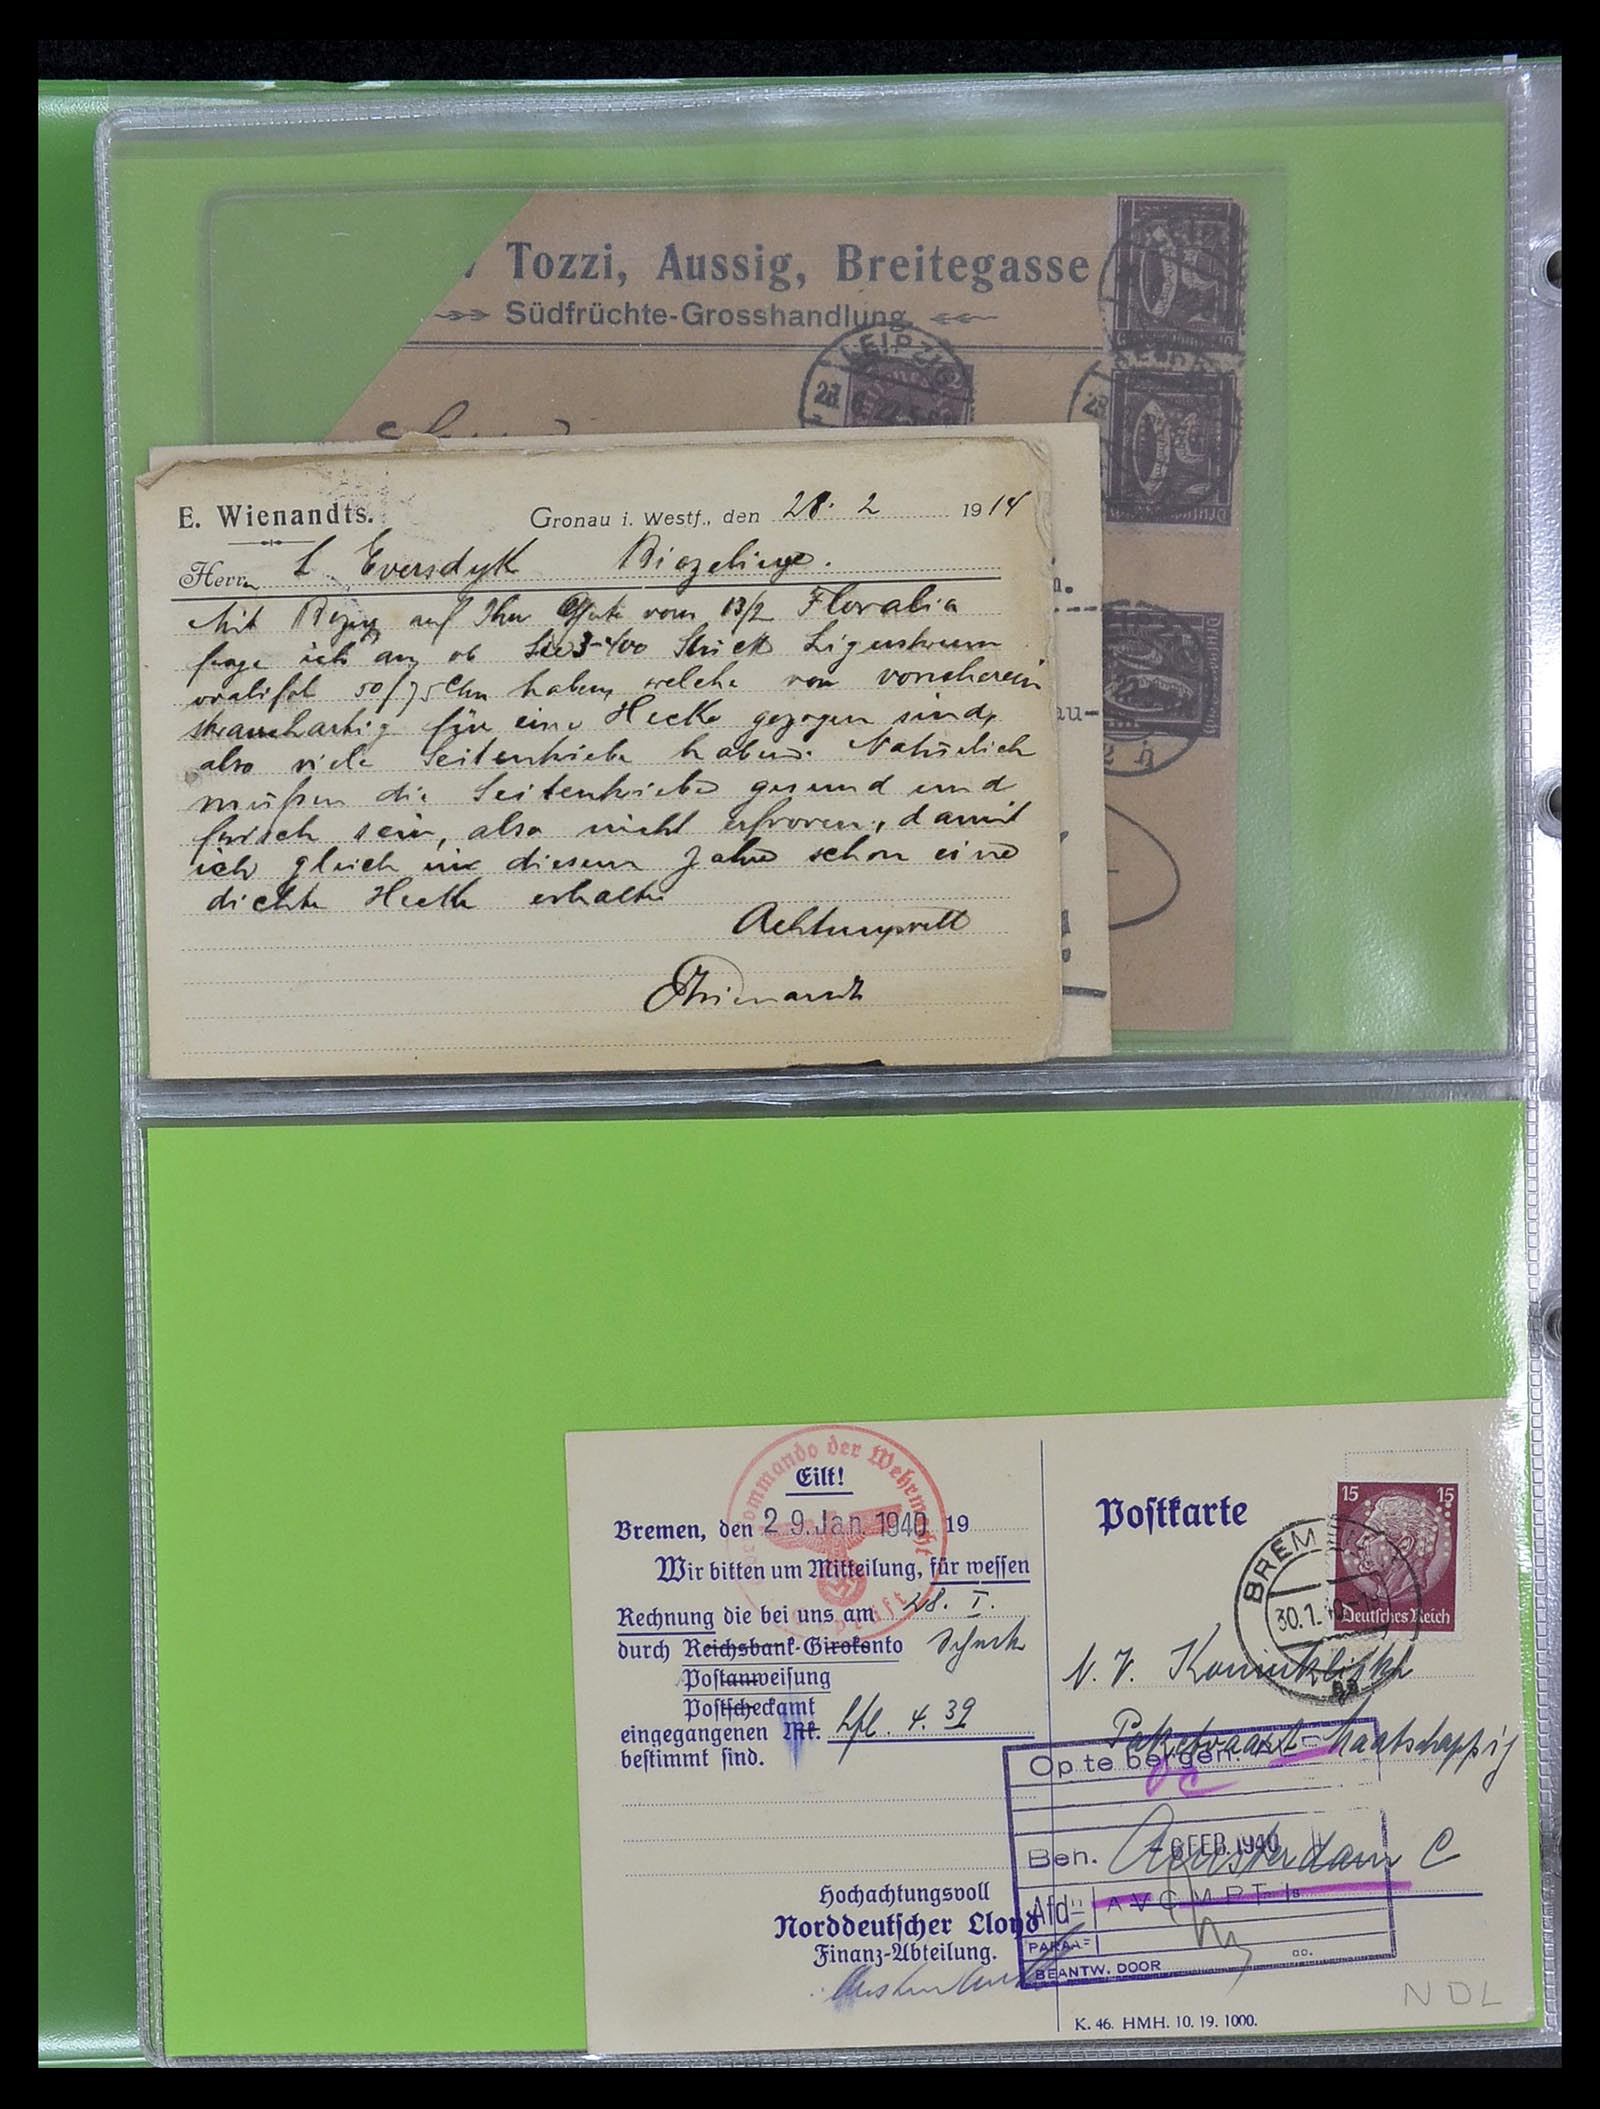 Tozzi, Aussig, Breitegasse
Südfrüchte-Grosshandlung
LEIPZIG
E. Wienandts.
Gronau i. Westf., den 28. 2 1914
Herrn L Eversdyk Biezelinge.
Mit Bezug auf Ihre Offerte vom 13/2 Floralia
frage ich an, ob Sie 3-400 Stück Ligustrum
ovalifol 50/75 Ctm haben, welche von vornherein
strauchartig für eine Hecke gezogen sind,
also viele Seitentriebe haben. Natürlich
müssen die Seitentriebe gesund und
frisch sein, also nicht erfroren, damit
ich gleich in diesem Jahre schon eine
dichte Hecke erhalte
Achtungsvoll
EWienandts
Oberkommando der Wehrmacht
Eilt!
Bremen, den 29. Jan. 1940 19
Wir bitten um Mitteilung, für wessen
Rechnung die bei uns am 28. I.
durch Reichsbank-Girokonto Scheck
Postanweisung
Postscheckamt
eingegangenen Mk. hfl. 4.39
bestimmt sind.
Hochachtungsvoll
Norddeutscher Lloyd
Finanz-Abteilung.
Postkarte
15 15
Deutsches Reich
BREMEN
30.1.40
N. V. Koninklijke
Paketvaart-Maatschappij
Amsterdam C
Op te bergen:
Beh. - 6 FEB. 1940
Afdn
PARA
BEANTW. DOOR
K. 46. HMH. 10. 19. 1000.
NDL